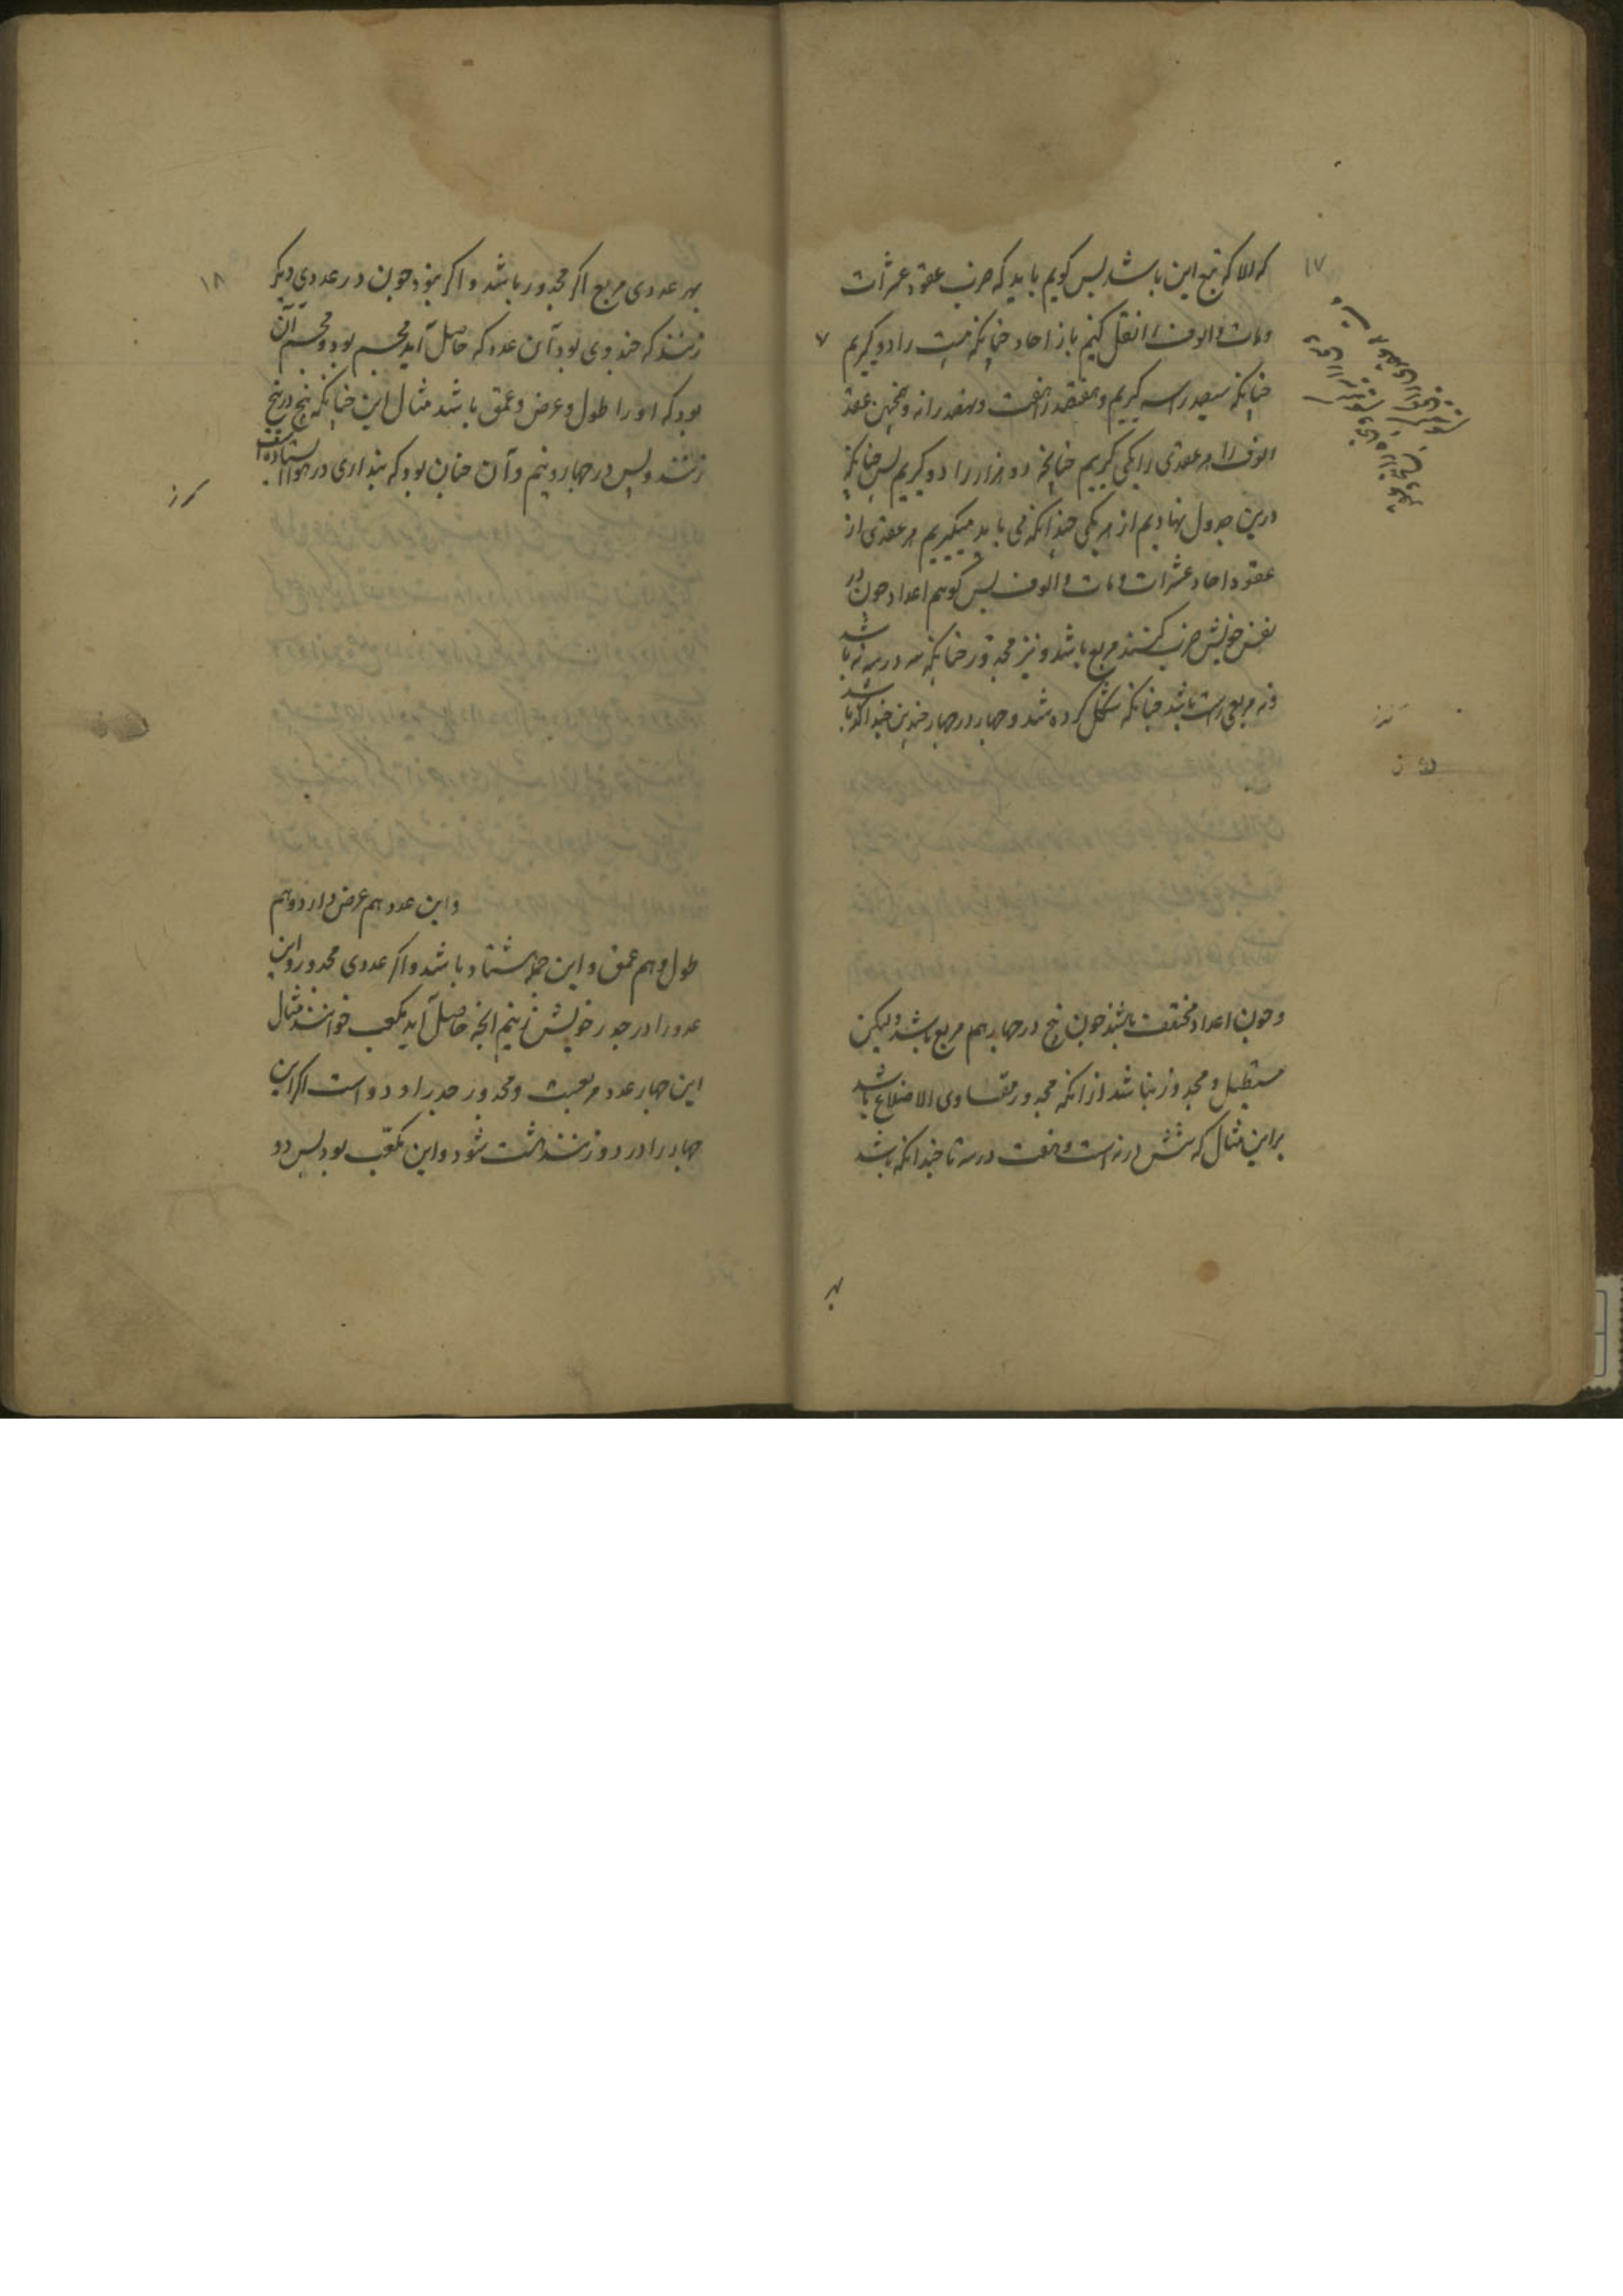 ۱۷
که الا که تبع این باشد پس کویم باید که ضرب عقود عشرات
ومات والوف را نقل کنیم باز احاد چنانکه بیست را دو کیریم
چنانکه سیصد را سه کیریم وهفتصد را هفت ونهصد را نه وهمچنین عقد
الوف را هر عقدی را یکی کیریم چنانچه دو هزار را دو کیریم پس چنانکه
درین جدول نهادیم از هر یکی چندانکه می باید میکیریم هر عقدی از
عقود احاد عشرات ومات والوف پس کوییم اعداد چون در
نفس خویش ضرب کنند مربع باشد ونیز مجذور چنانکه سه در سه نه باشد
ونه مربعی راست باشد چنانکه شکل کرده شد وچهار در چهار چندین چندانکه باشد
وچون اعداد مختلف باشند چون پنج در چهار هم مربع باشد ولیکن
مستطیل ومجذور نباشد از انکه مجذور متساوی الاضلاع باشد
براین مثال که شش در نه است وهفت در سه تا چندانکه باشد
بهر
۱۸
بهر عددی مربع اکر مجذور باشد واکر نبود چون در عددی دیکر
زنند که خذ وی بود آن عدد که حاصل آید مجسم بود ومجسم آن
بود که او را طول وعرض وعمق باشد مثال این چنانکه پنج در پنج
زنند وپس در چهار ونیم وآن چنان بود که پنداری در هوا ایستاده است
واین عدد هم عرض دارد وهم
طول وهم عمق واین جمله هشتاد باشد واکر عددی مجذور واین
عدد را در جذر خویش زنیم انچه حاصل آید مکعب خوانند مثال
این چهار عدد مربعست ومجذور جذر او دو است اکر این
چهار را در دو زنند هشت شود واین مکعب بود پس دو